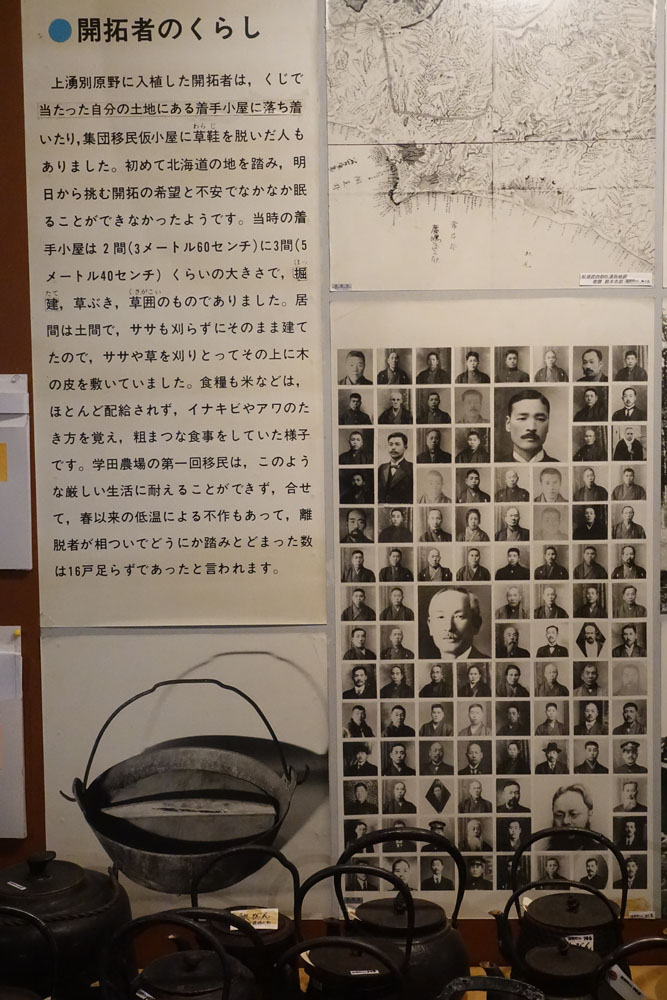 ●開拓者のくらし
上湧別原野に入植した開拓者は，くじで
当たった自分の土地にある着手小屋に落ち着
いたり，集団移民仮小屋に草鞋を脱いだ人も
わらじ
ありました。初めて北海道の地を踏み，明
日から挑む開拓の希望と不安でなかなか眠
ることができなかったようです。当時の着
手小屋は2間(3メートル60センチ)に3間(5
メートル40センチ）くらいの大きさで，掘
ほっ
建，草ぶき，草囲のものでありました。居
たて
くさがこい
間は土間で，ササも刈らずにそのまま建て
たので，ササや草を刈りとってその上に木
の皮を敷いていました。食糧も米などは，
ほとんど配給されず，イナキビやアワのた
き方を覚え，粗まつな食事をしていた様子
です。学田農場の第一回移民は，このよう
な厳しい生活に耐えることができず，合せ
て，春以来の低温による不作もあって，離
脱者が相ついでどうにか踏みとどまった数
は16戸足らずであったと言われます。